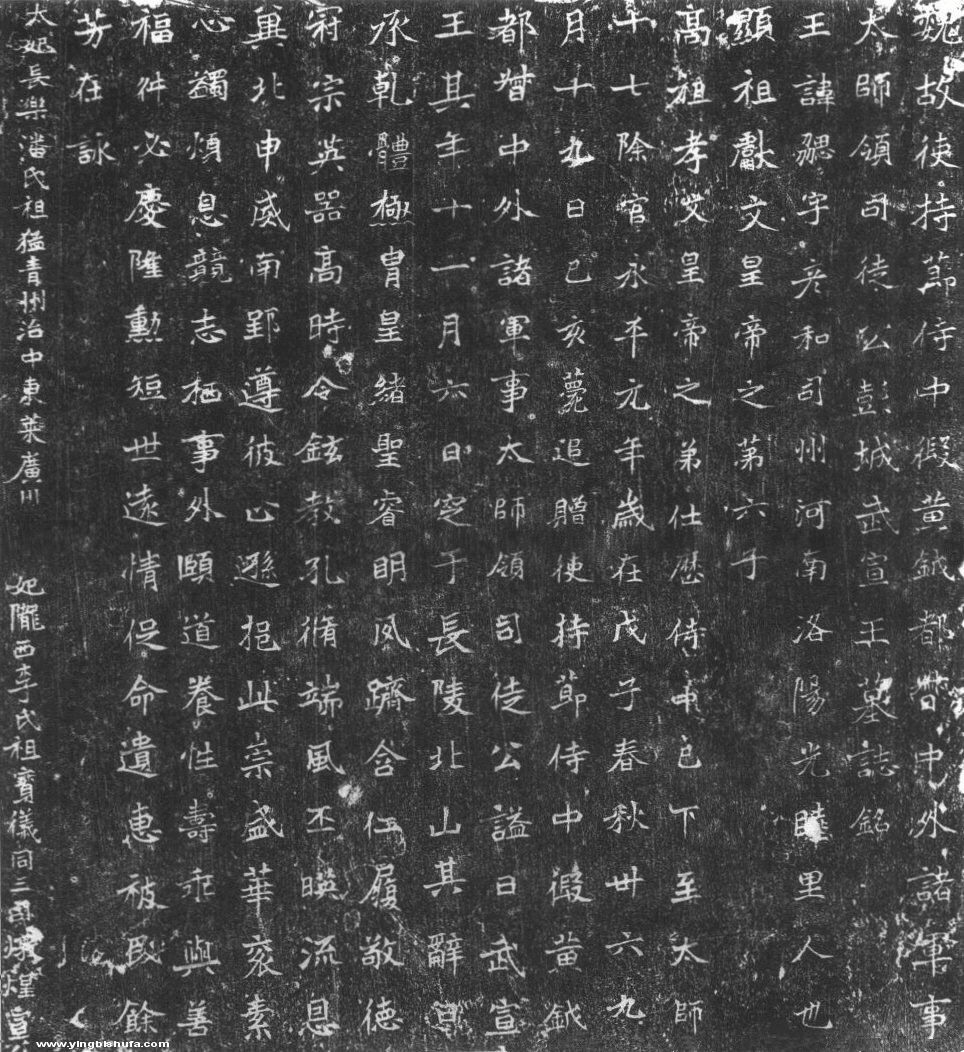 魏故使持節侍中假黃鉞都督中外諸軍事
太師領司徒公彭城武宣王墓誌銘
王諱勰字彥和司州河南洛陽光睦里人也
顯祖獻文皇帝之第六子
高祖孝文皇帝之弟仕歷侍中已下至太師
十七除官永平元年歲在戊子春秋卅六九
月十九日己亥薨追贈使持節侍中假黃鉞
都督中外諸軍事太師領司徒公謚曰武宣
王其年十一月六日窆于長陵北山其辭曰
承乾體極胄皇緒聖睿明夙躋含仁履敬德
冠宗英器高時令鉉教孔脩端風丕暎流恩
冀北申威南郢遵彼止遜挹此崇盛華袞素
心蠲煩息競志栖事外頤道養性壽乖與善
福舛必慶隆勳短世遠情促命遺惠被民餘
芳在詠
太妃長樂潘氏祖猛青州治中東萊廣川 妃隴西李氏祖寶儀同三司燉煌宣
www.yingbishufa.com